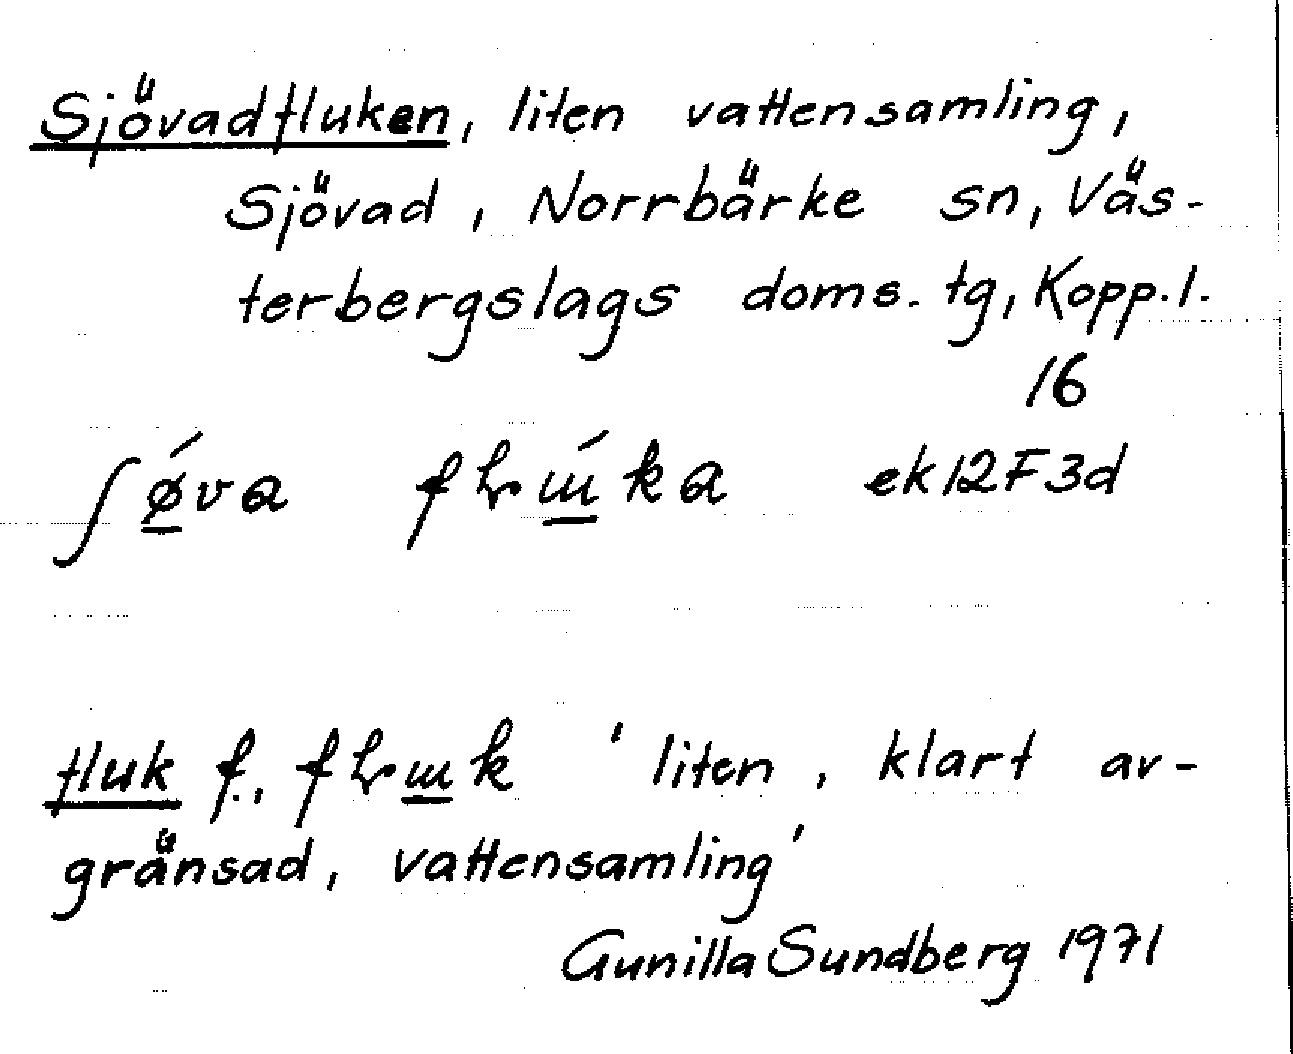 Sjövadfluken, liten vattensamling,
Sjövad, Norrbärke sn, Väs-
terbergslags doms. tg, Kopp. l.
16
ek 12F3d
fluk f., 'liten, klart av-
gränsad, vattensamling'
Gunilla Sundberg 1971